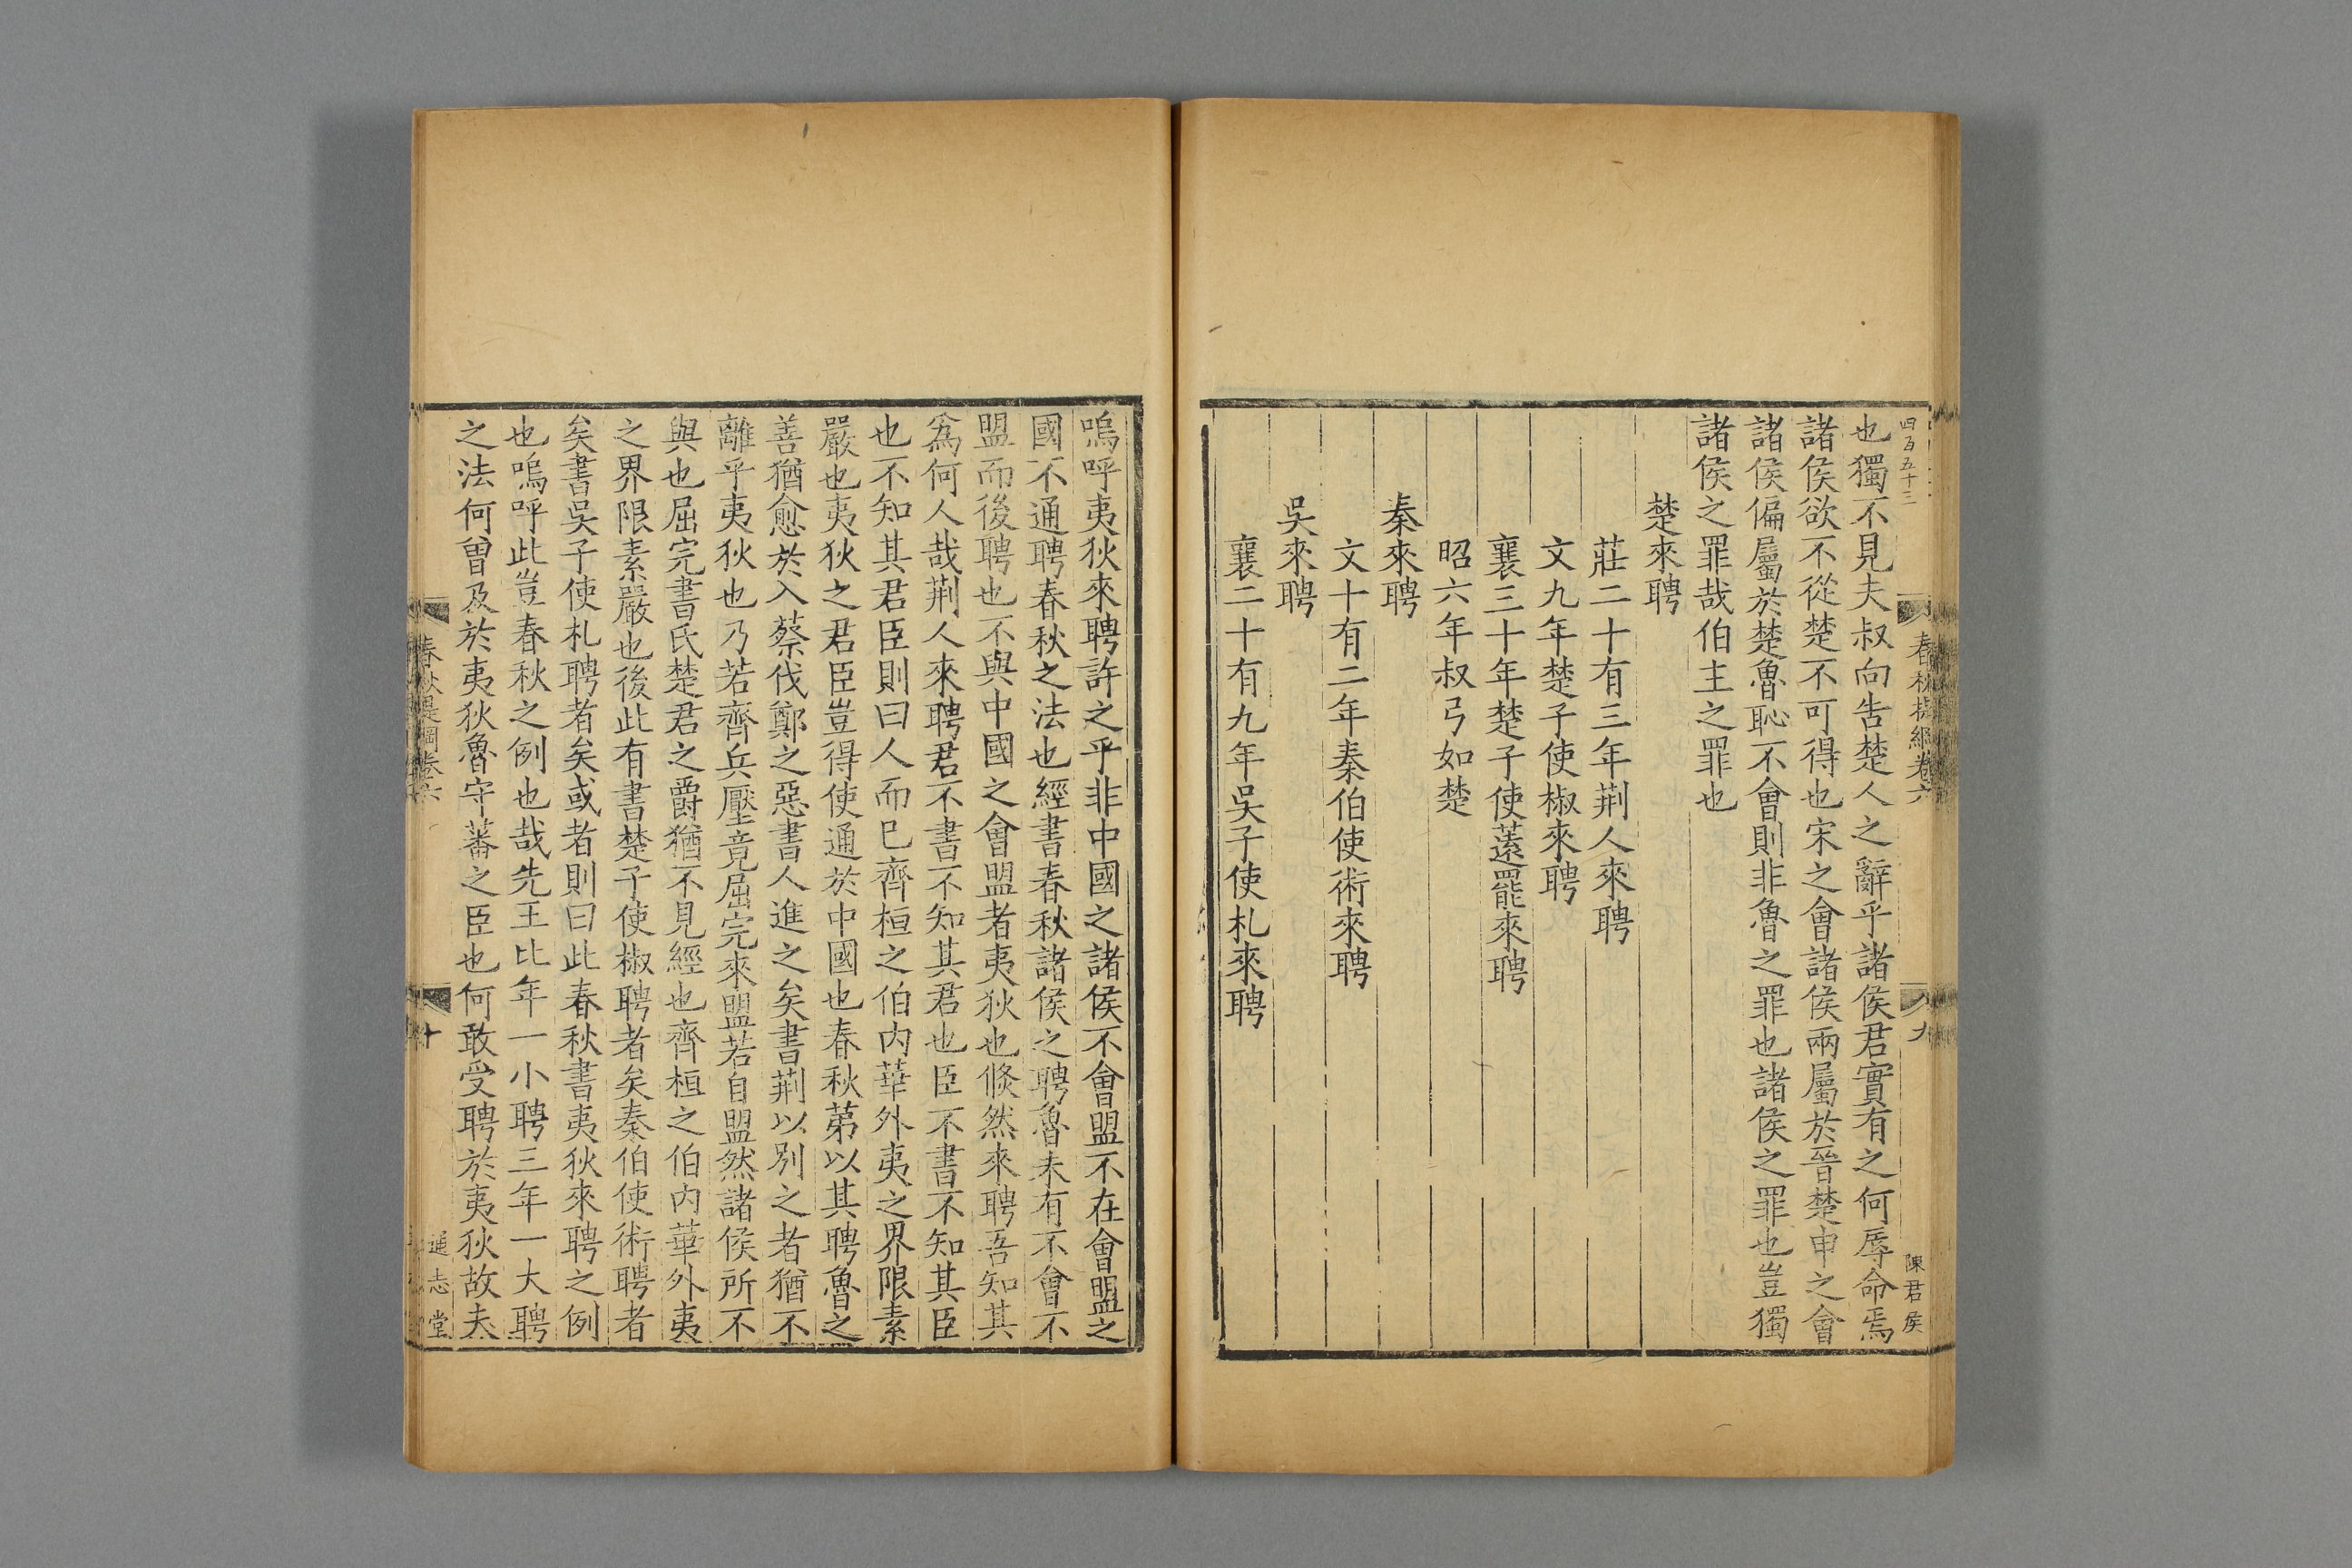 四百五十三
春秋提綱卷六
九
陳君侯
也獨不見夫叔向告楚人之辭乎諸侯君實有之何辱命焉
諸侯欲不從楚不可得也宋之會諸侯兩屬於晉楚申之會
諸侯偏屬於楚魯恥不會則非魯之罪也諸侯之罪也豈獨
諸侯之罪哉伯主之罪也
楚來聘
莊二十有三年荆人來聘
文九年楚子使椒來聘
襄三十年楚子使薳罷來聘
昭六年叔弓如楚
秦來聘
文十有二年秦伯使術來聘
吳來聘
襄二十有九年吳子使札來聘
嗚呼夷狄來聘許之乎非中國之諸侯不會盟不在會盟之
國不通聘春秋之法也經書春秋諸侯之聘魯未有不會不
盟而後聘也不與中國之會盟者夷狄也倐然來聘吾知其
爲何人哉荆人來聘君不書不知其君也臣不書不知其臣
也不知其君臣則曰人而已齊桓之伯内華外夷之界限素
嚴也夷狄之君臣豈得使通於中國也春秋第以其聘魯之
善猶愈於入蔡伐鄭之惡書人進之矣書荆以别之者猶不
離乎夷狄也乃若齊兵壓竟屈完來盟若自盟然諸侯所不
與也屈完書氏楚君之爵猶不見經也齊桓之伯内華外夷
之界限素嚴也後此有書楚子使椒聘者矣秦伯使術聘者
矣書吳子使札聘者矣或者則曰此春秋書夷狄來聘之例
也嗚呼此豈春秋之例也哉先王比年一小聘三年一大聘
之法何曾及於夷狄魯守蕃之臣也何敢受聘於夷狄故夫
春秋提綱卷六
十
通志堂